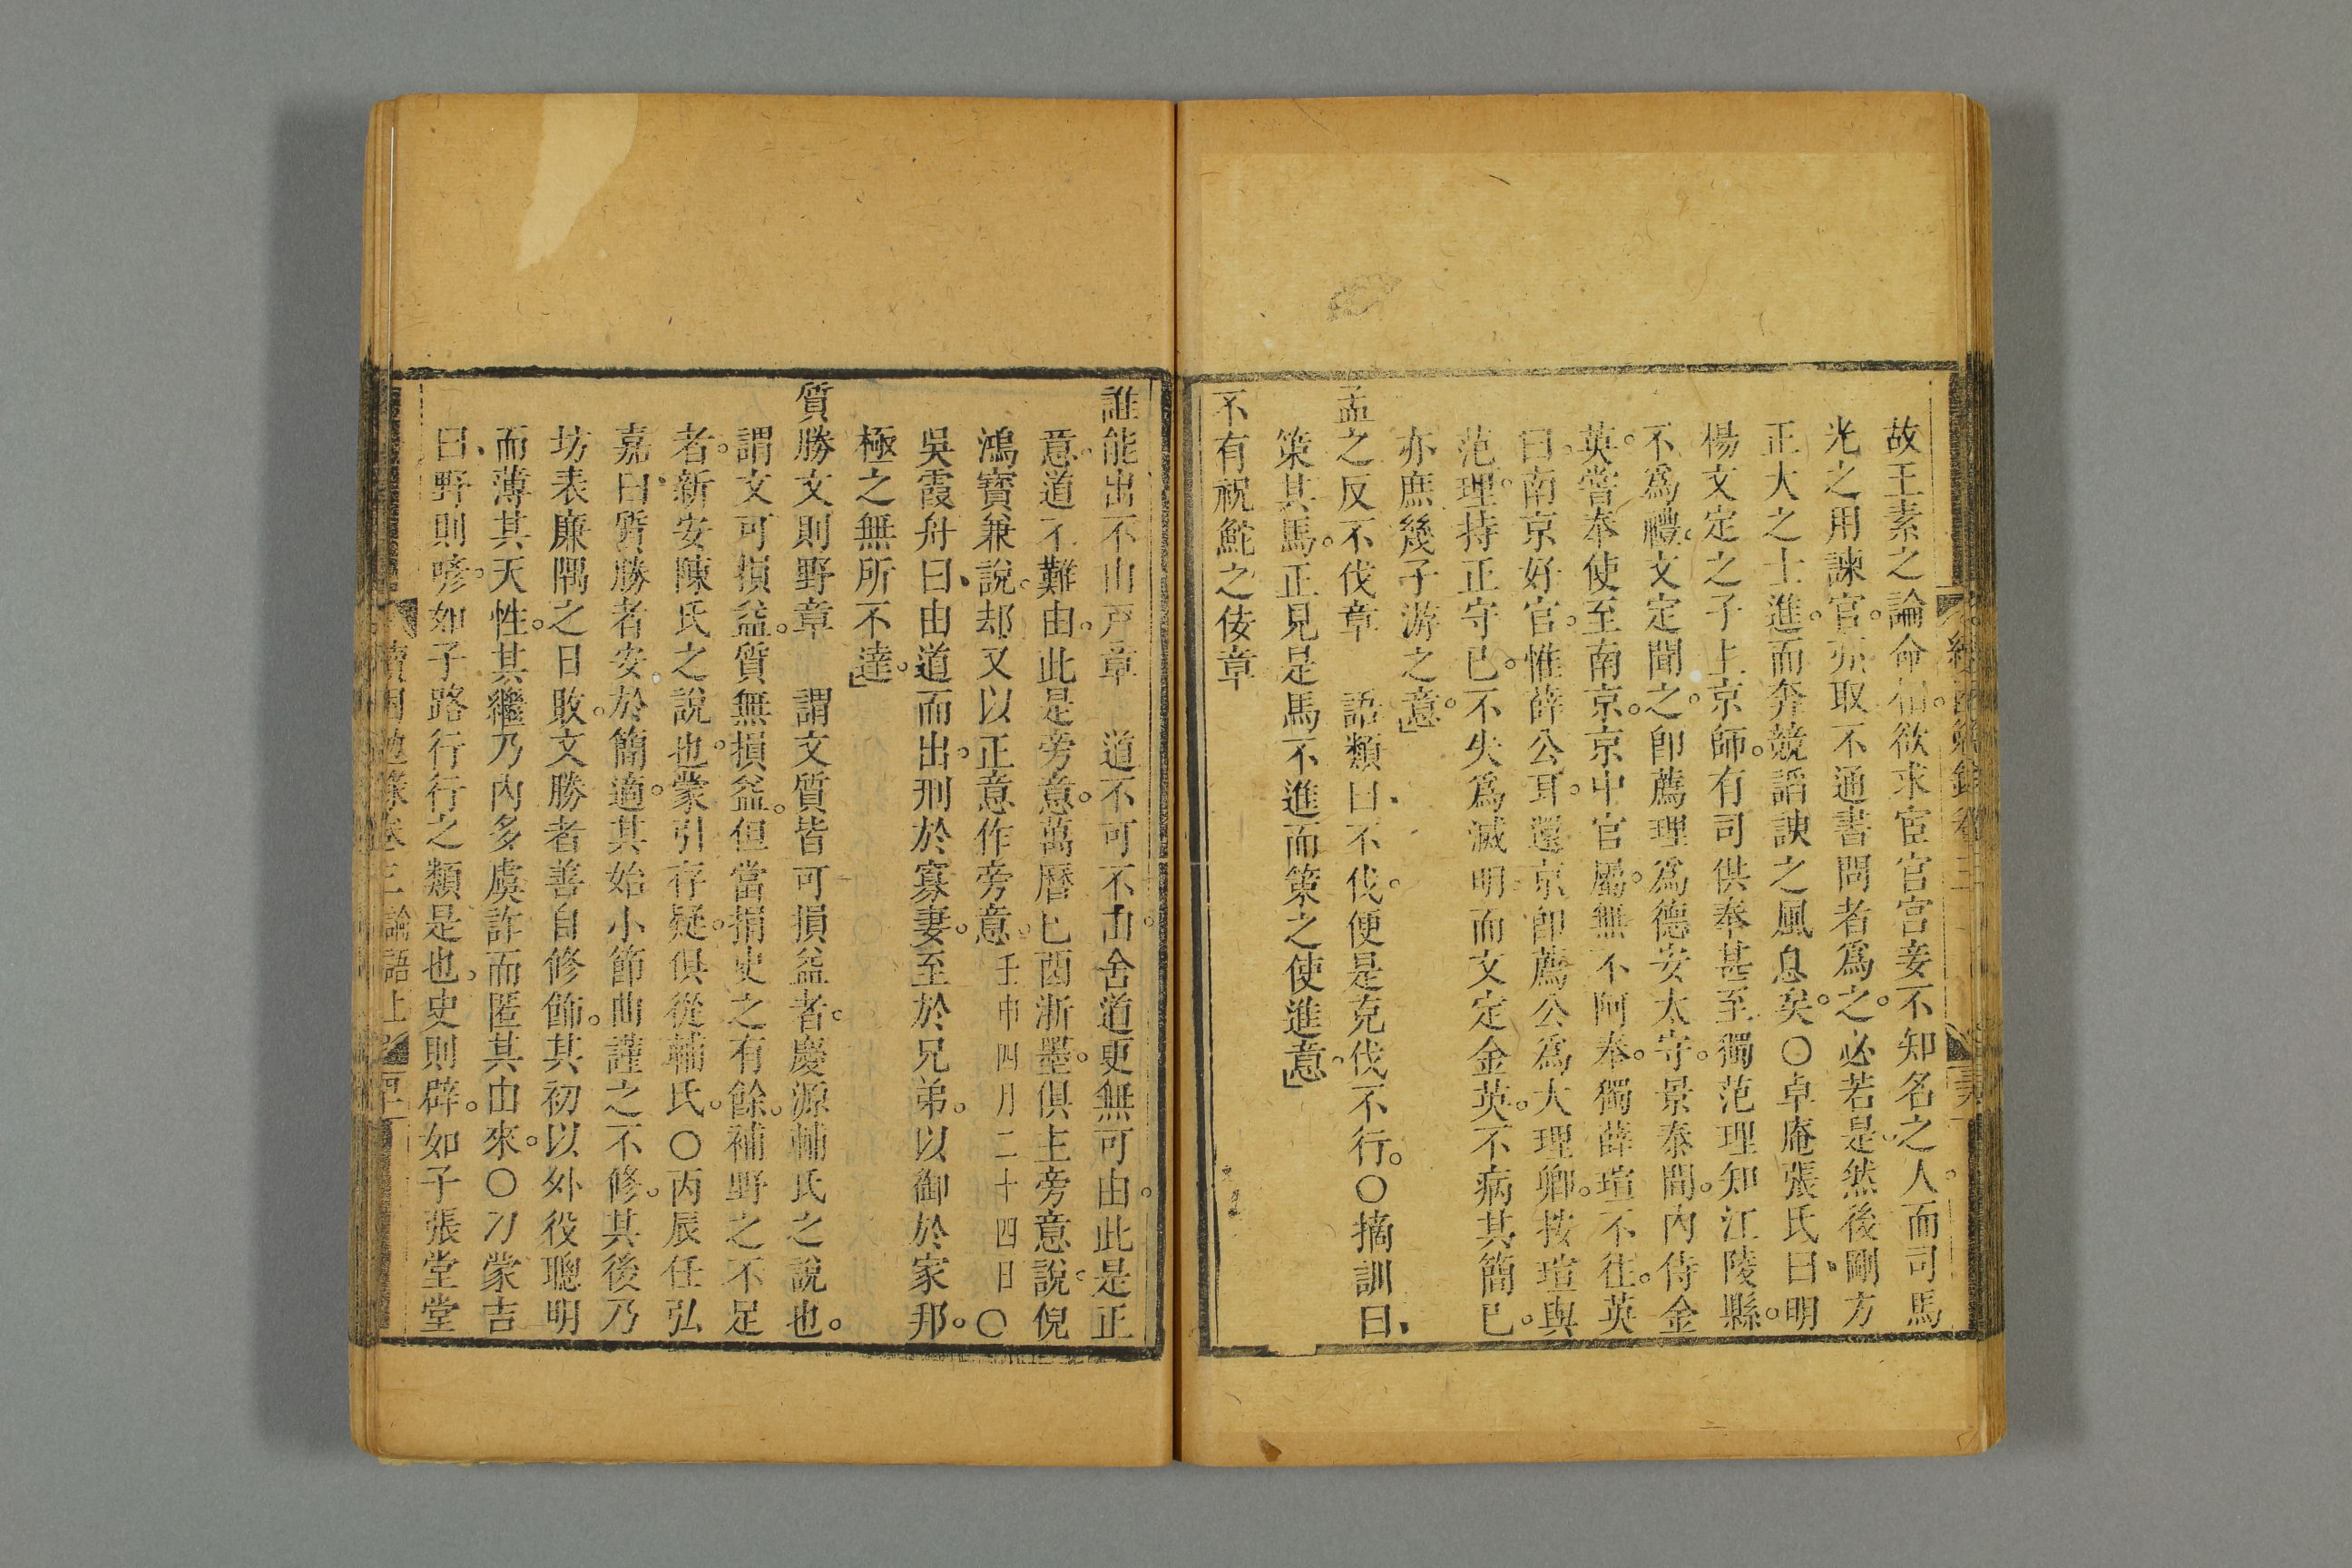 故王素之論命相欲求宦官宮妾不知名之人而司馬
光之用諫官亦取不通書問者爲之必若是然後剛方
正大之士進而奔競謟諛之風息矣○卓庵張氏曰明
楊文定之子上京師有司供奉甚至獨范理知江陵縣
不爲禮文定聞之卽薦理爲德安太守景泰間內侍金
英嘗奉使至南京京中官屬無不阿奉獨薛瑄不往英
曰南京好官惟薛公耳還京卽薦公爲大理卿按瑄與
范理持正守已不失爲滅明而文定金英不病其簡已
亦庶幾子游之意
孟之反不伐章 語類曰不伐便是克伐不行○摘訓曰
策其馬正見是馬不進而策之使進意
不有祝鮀之佞章
誰能出不由戸章 道不可不由舍道更無可由此是正
意道不難由此是旁意萬曆巳酉浙墨俱主旁意說倪
鴻寶兼說却又以正意作旁意壬申四月二十四日○
吳霞舟曰由道而出出刑於寡妻至於兄弟以御於家邦
極之無所不達
質勝文則野章 謂文質皆可損益者慶源輔氏之說也
謂文可損益質無損益但當捐史之有餘補野之不足
者新安陳氏之說也蒙引存疑俱從輔氏○丙辰任弘
嘉曰質勝者安於簡適其始小節曲謹之不修其後乃
坊表廉隅之日敗文勝者善自修飾其初以外役聰明
而薄其天性其繼乃內多虞詐而匿其由來○刀蒙吉
曰野則喭如子路行行之類是也史則辟如子張堂堂
續困勉錄卷三 論語上